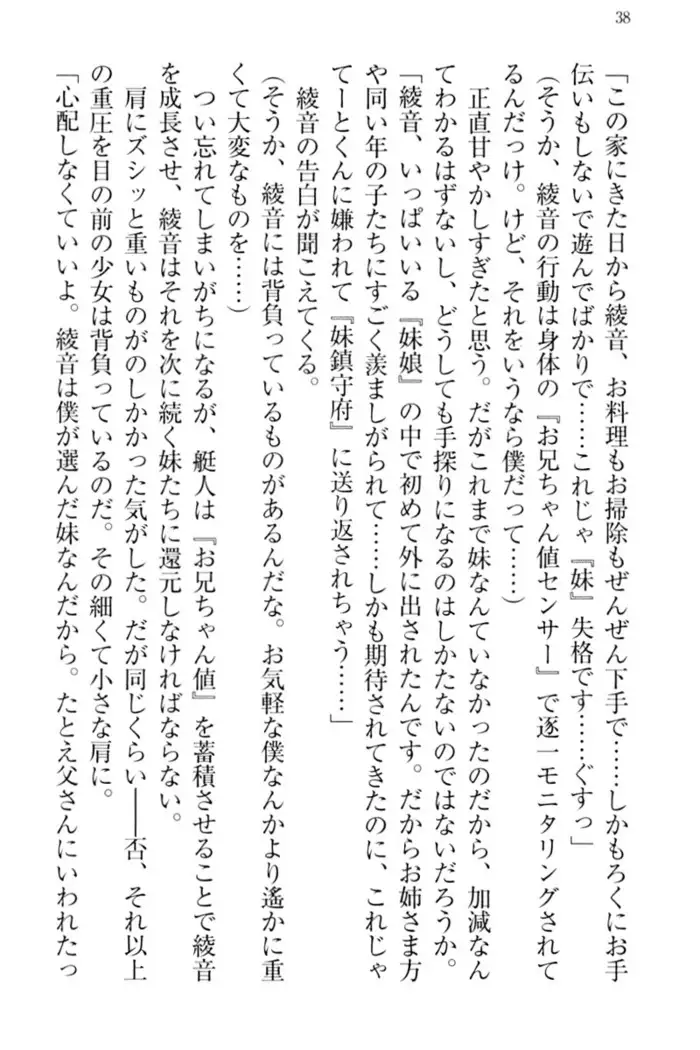 38
「この家にきた日から綾音、お料理もお掃除もぜんぜん下手で……しかもろくにお手
伝いもしないで遊んでばかりで……これじゃ『妹』失格です……ぐすっ」
（そうか、綾音の行動は身体の『お兄ちゃん値センサー』で逐一モニタリングされて
るんだっけ。けど、それをいうなら僕だって……）
正直甘やかしすぎたと思う。だがこれまで妹なんていなかったのだから、加減なん
てわかるはずないし、どうしても手探りになるのはしかたないのではないだろうか。
「綾音、いっぱいいる『妹娘』の中で初めて外に出されたんです。だからお姉さま方
や同い年の子たちにすごく羨ましがられて……しかも期待されてきたのに、これじゃ
てーとくんに嫌われて『妹鎮守府』に送り返されちゃう……」
綾音の告白が聞こえてくる。
（そうか、綾音には背負っているものがあるんだな。お気軽な僕なんかより遙かに重
くて大変なものを……）
つい忘れてしまいがちになるが、艇人は『お兄ちゃん値』を蓄積させることで綾音
を成長させ、綾音はそれを次に続く妹たちに還元しなければならない。
肩にズシッと重いものがのしかかった気がした。だが同じくらい――否、それ以上
の重圧を目の前の少女は背負っているのだ。その細くて小さな肩に。
「心配しなくていいよ。綾音は僕が選んだ妹なんだから。たとえ父さんにいわれたっ